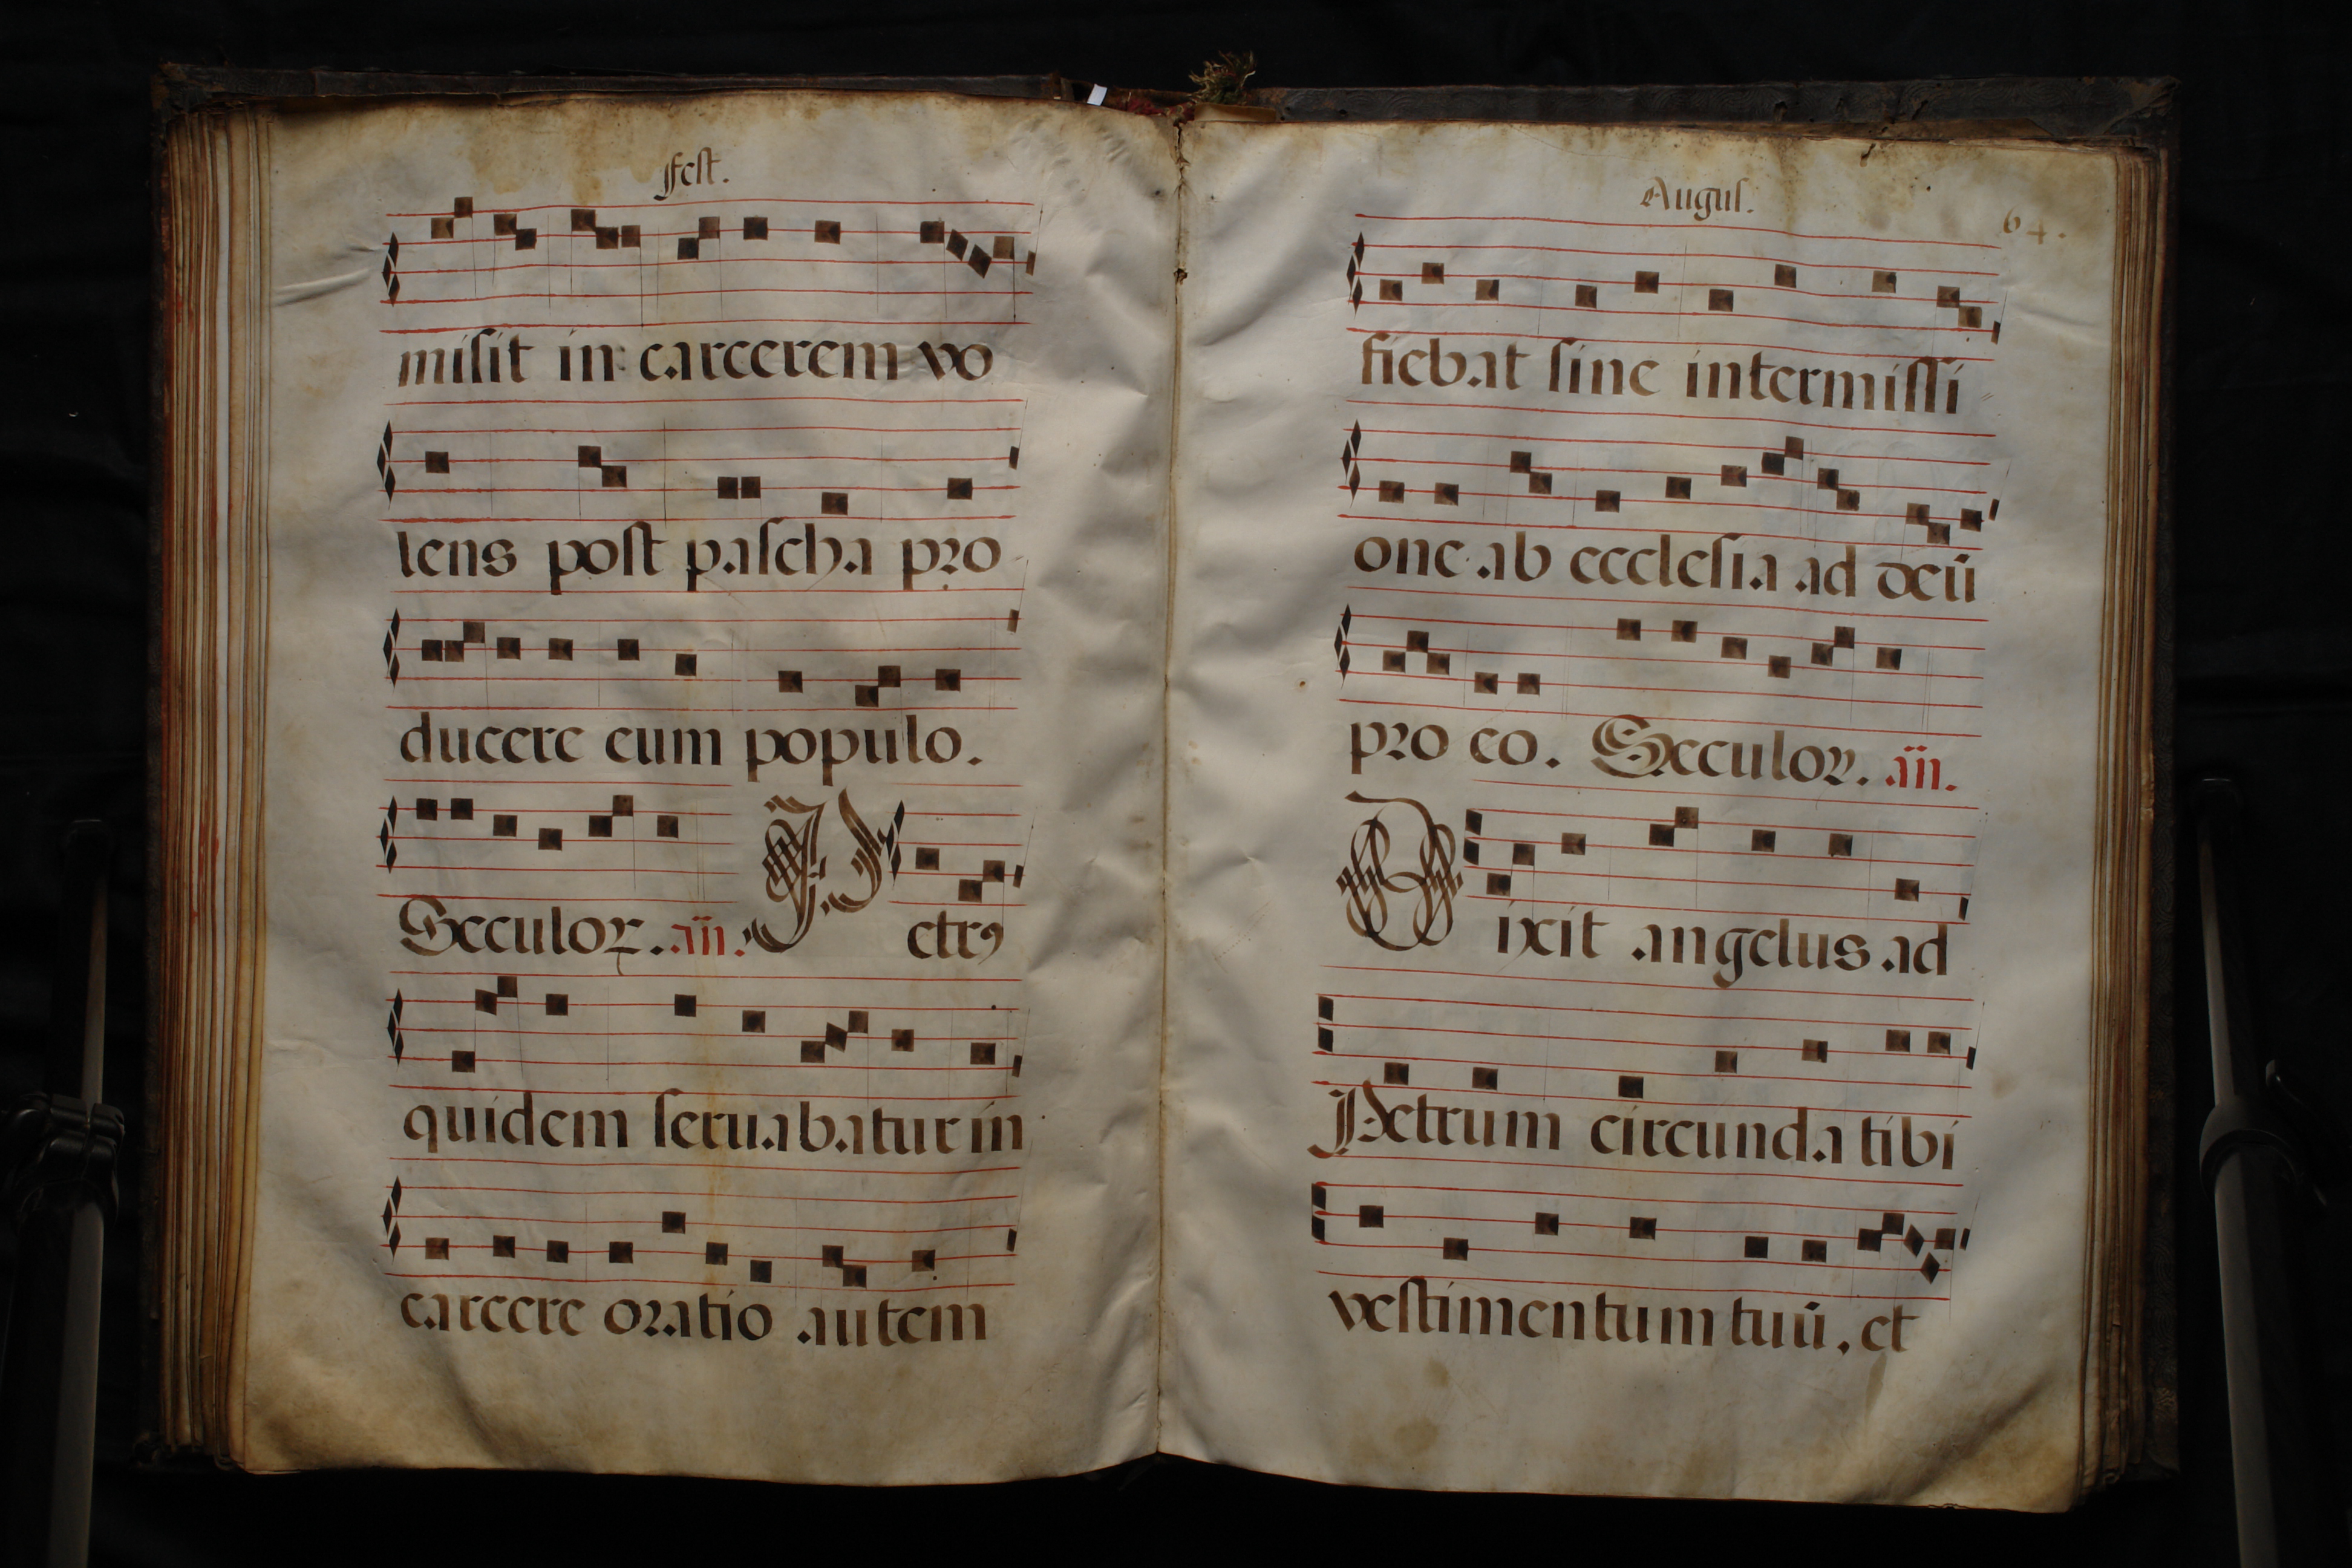 fest.
misit in carcerem vo
lens post pascha pro
ducere eum populo.
Seculoꝝ. añ. Petrꝯ
quidem seruabatur in
carcere oratio autem
Augus.
64.
fiebat sine intermissi
one ab ecclesia ad deū
pro eo. Seculoꝝ. añ.
Dixit angelus ad
Petrum circunda tibi
vestimentum tuū, et